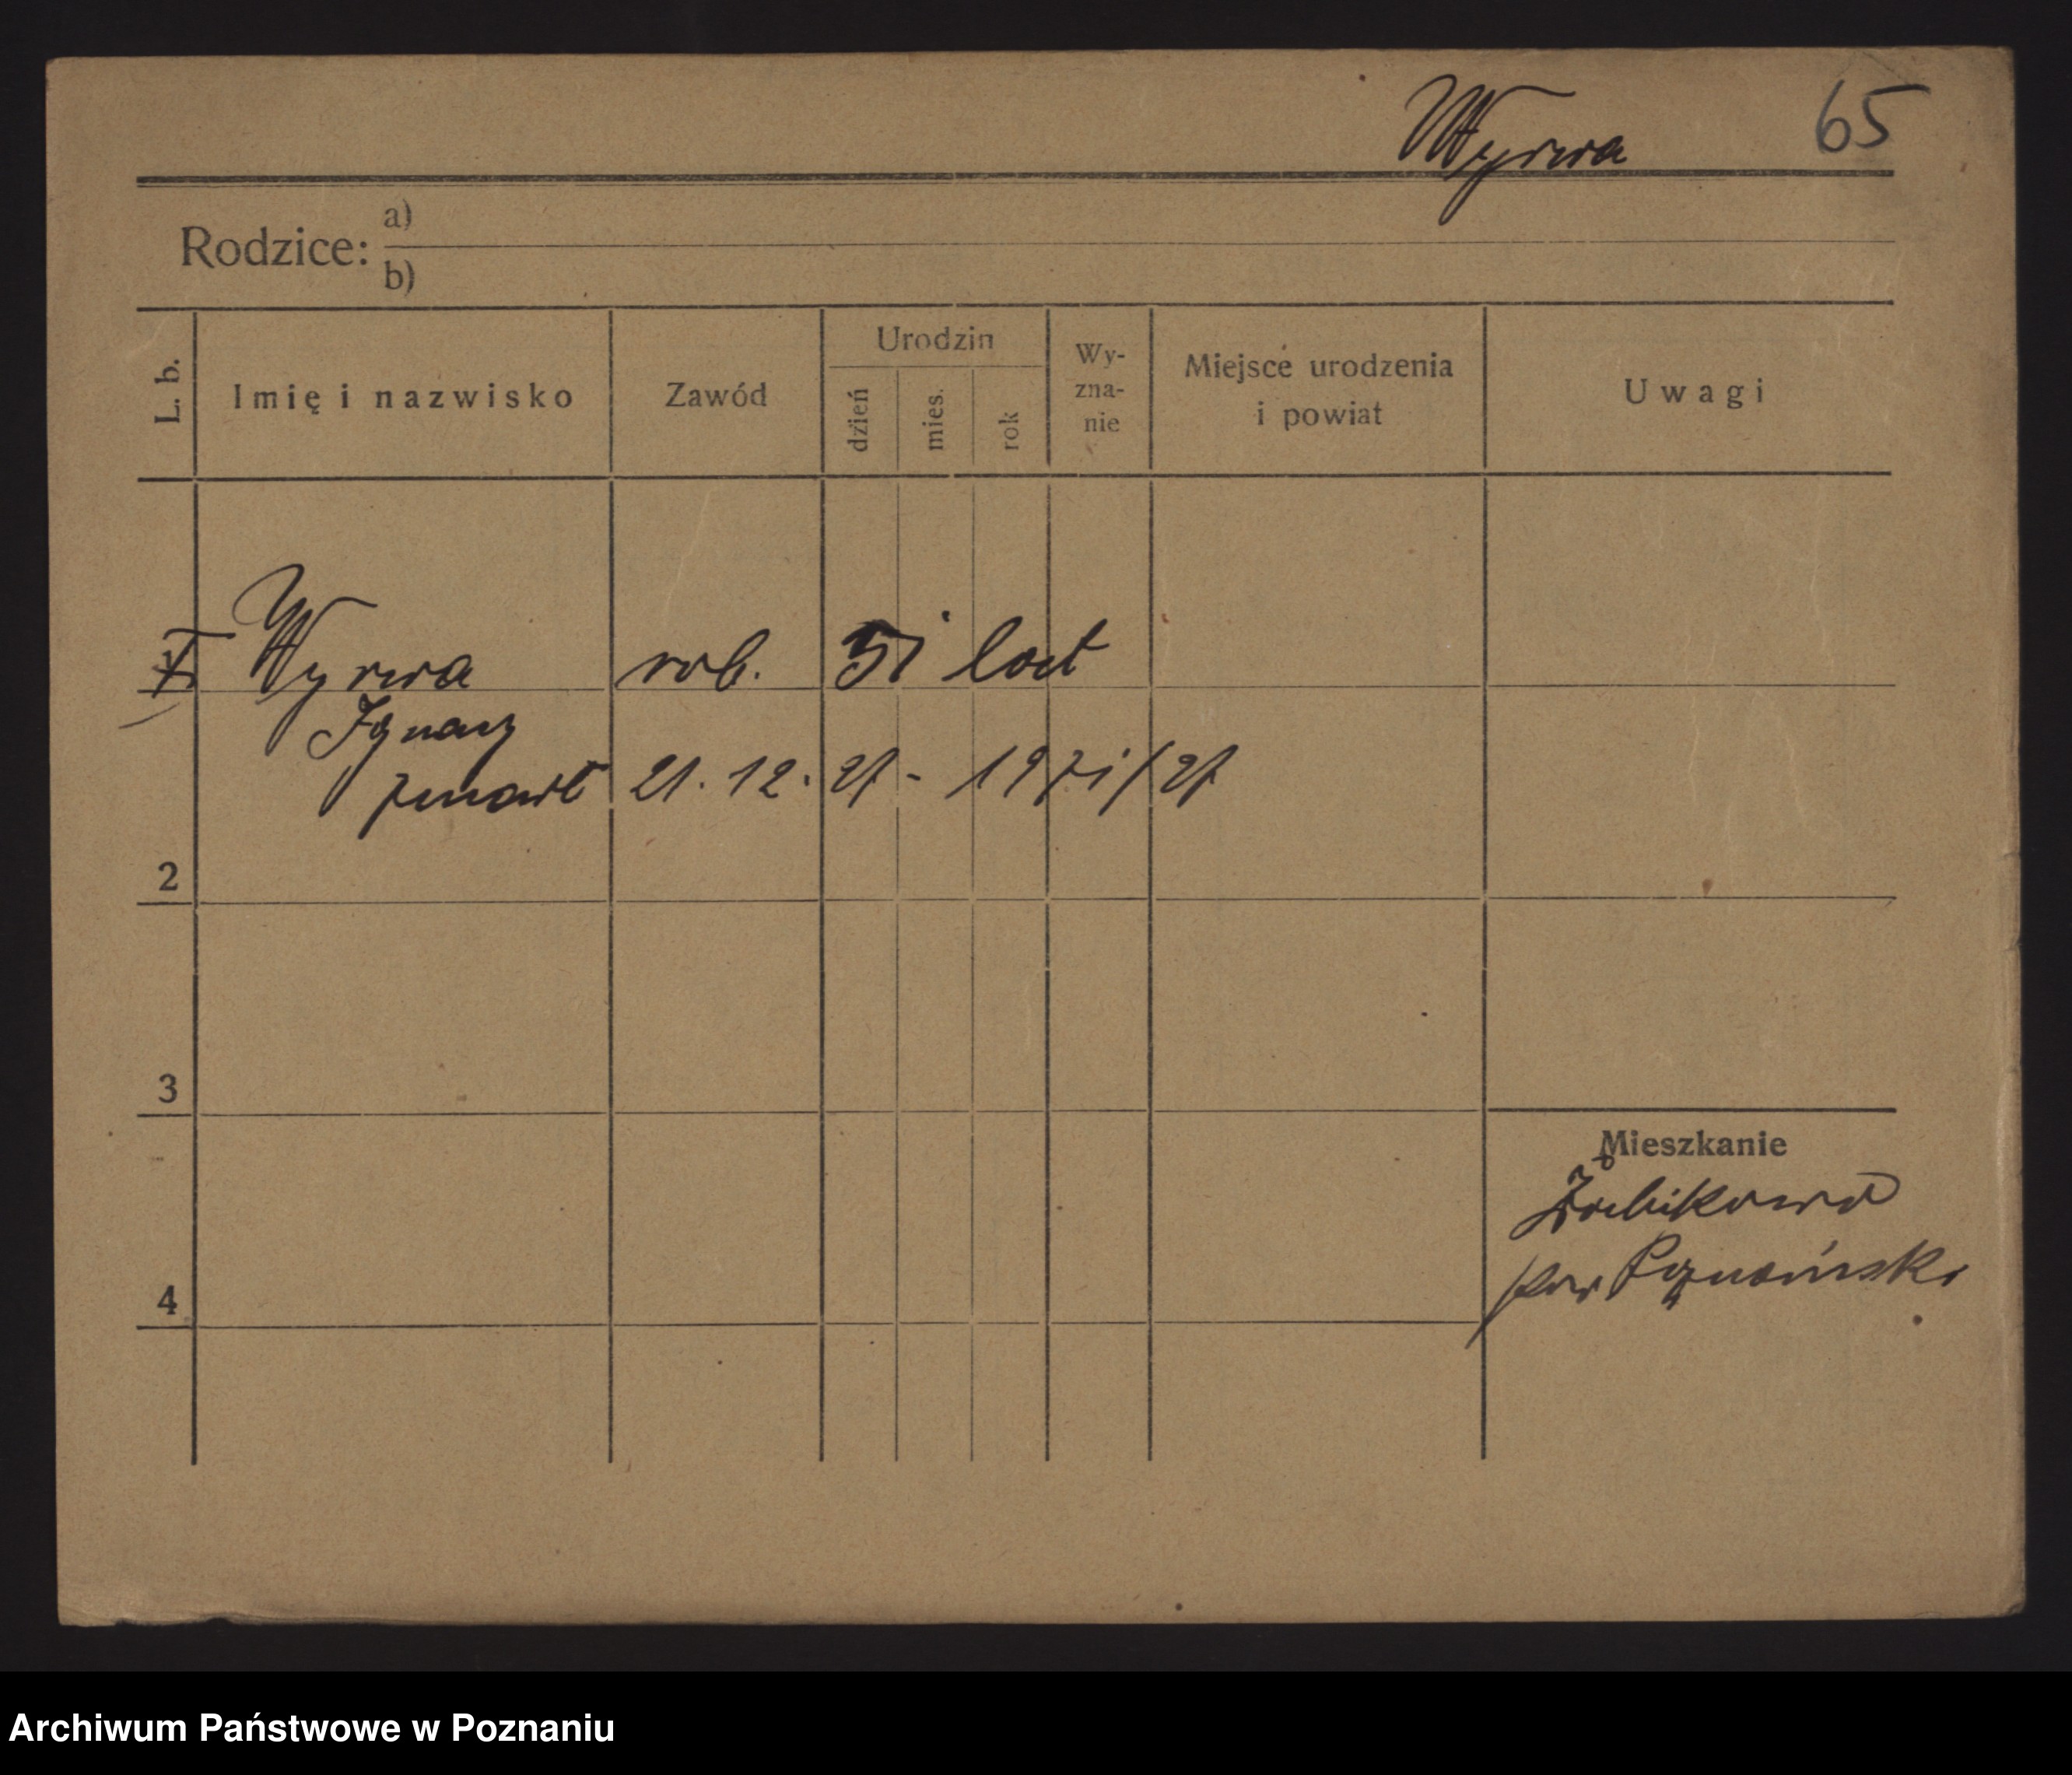 Wyrwa 65
Rodzice: a)
b)
L. b. Imię i nazwisko Zawód Urodzin dzień mies. rok Wy-zna-nie Miejsce urodzenia i powiat Uwagi
Wyrwa rob. 51 lat
Ignacy
zmarł 21. 12. 27 - 1971/27
2
3
Mieszkanie
Żabikowo
pow Poznański
4
Archiwum Państwowe w Poznaniu